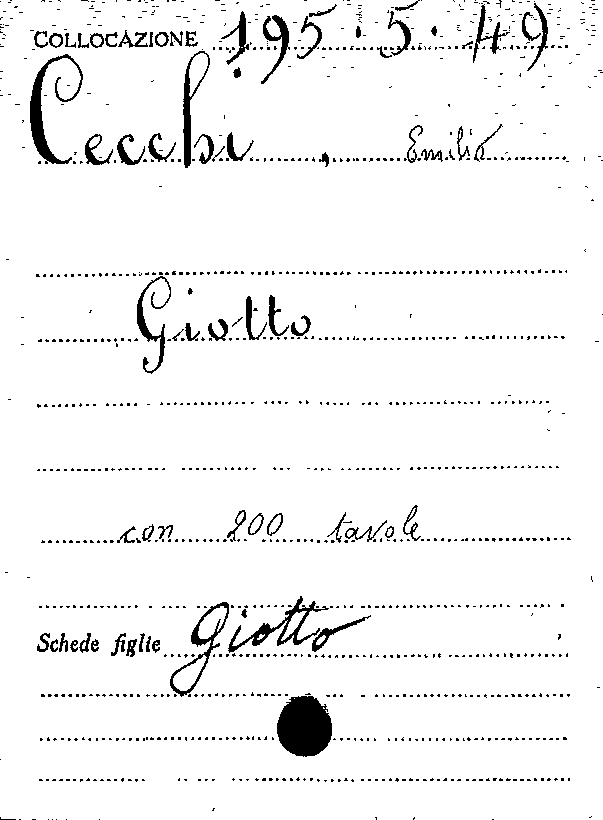 COLLOCAZIONE 195.5.49
Cecchi, Emilio
Giotto
con 200 tavole
Schede figlie Giotto